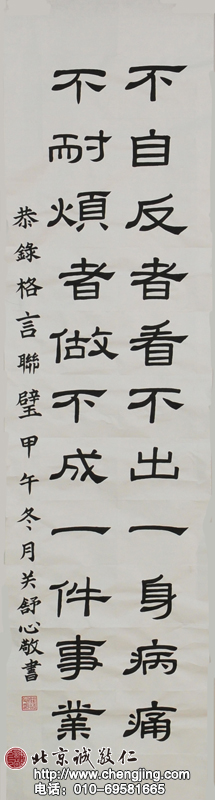 不自反者看不出一身病痛
不耐煩者做不成一件事業
恭錄格言聯璧甲午冬月关舒心敬書
北京诚敬仁
http://www.chengjing.com
电话：010-69581665